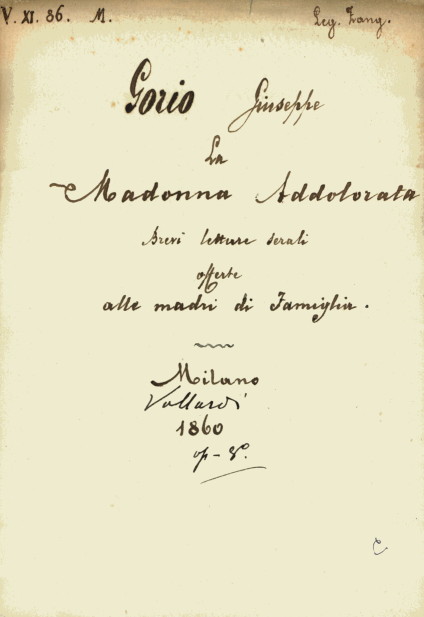 V. XI. 86. M. Leg. Zang.
Gorio Giuseppe
La
Madonna Addolorata
Brevi letture serali
offerte
alle madri di Famiglia.
Milano
Vallardi
1860
op-8°.
C